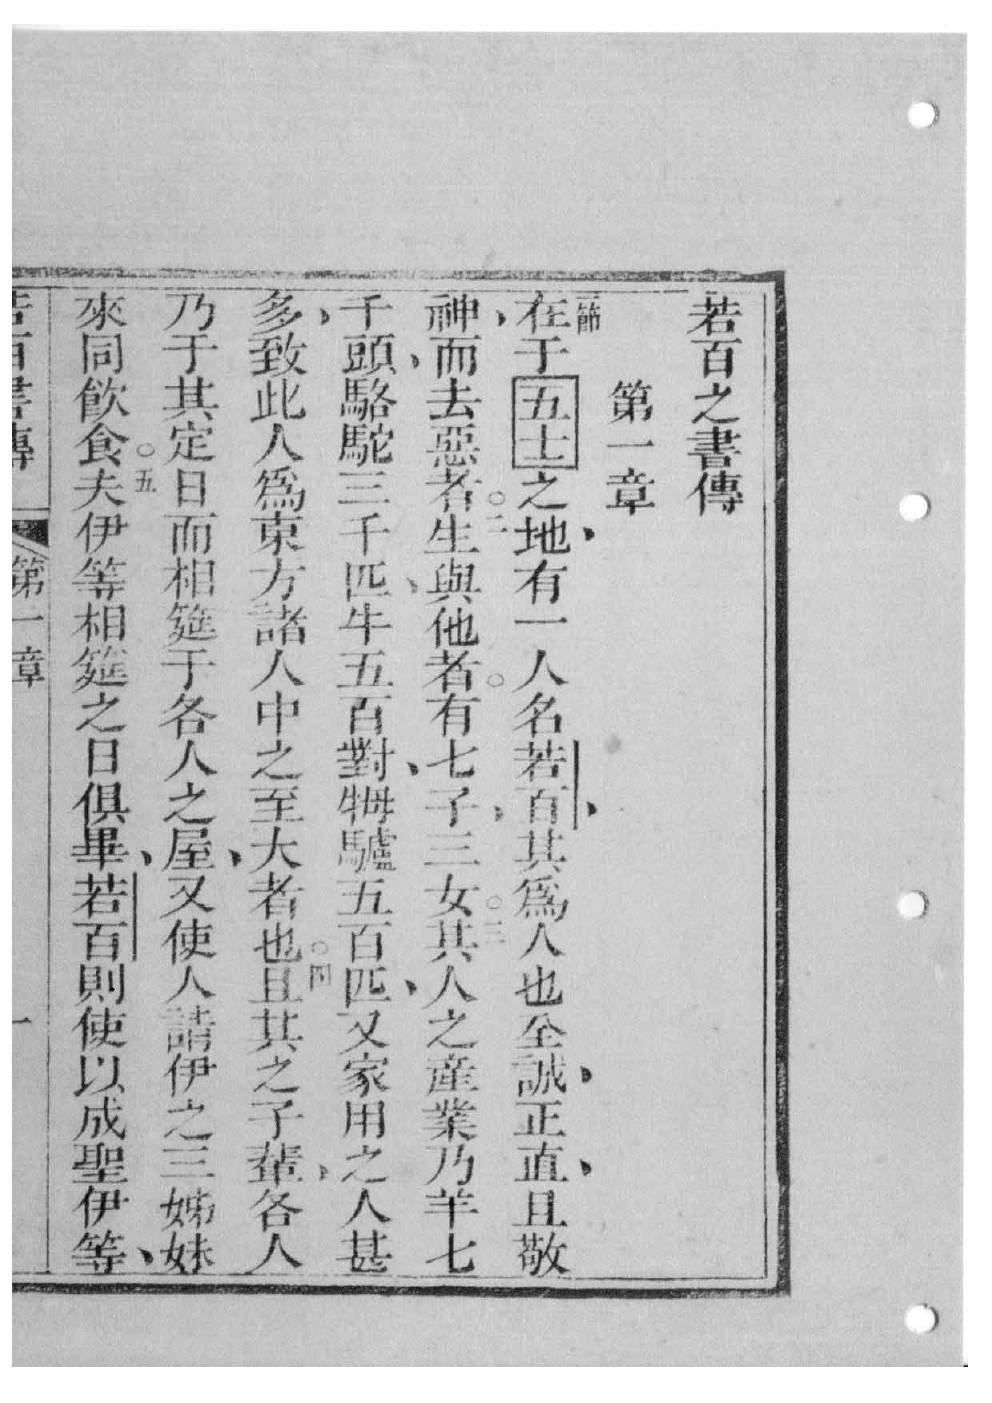 若百之書傳
第一章
一節在于五士之地、有一人名若百、其爲人也全誠、正直、且敬
神、而去惡者○二生與他者○有七子、三女○三其人之產業乃羊七
千頭、駱駝三千匹、牛五百對、牸驢五百匹、又家用之人甚
多、致此人爲東方諸人中之至大者也○四且其之子輩、各人
乃于其定日而相筵于各人之屋、又使人請伊之三姊妹
來同飮食○五夫伊等相筵之日俱畢、若百則使以成聖伊等、
若百書傳 第一章 一